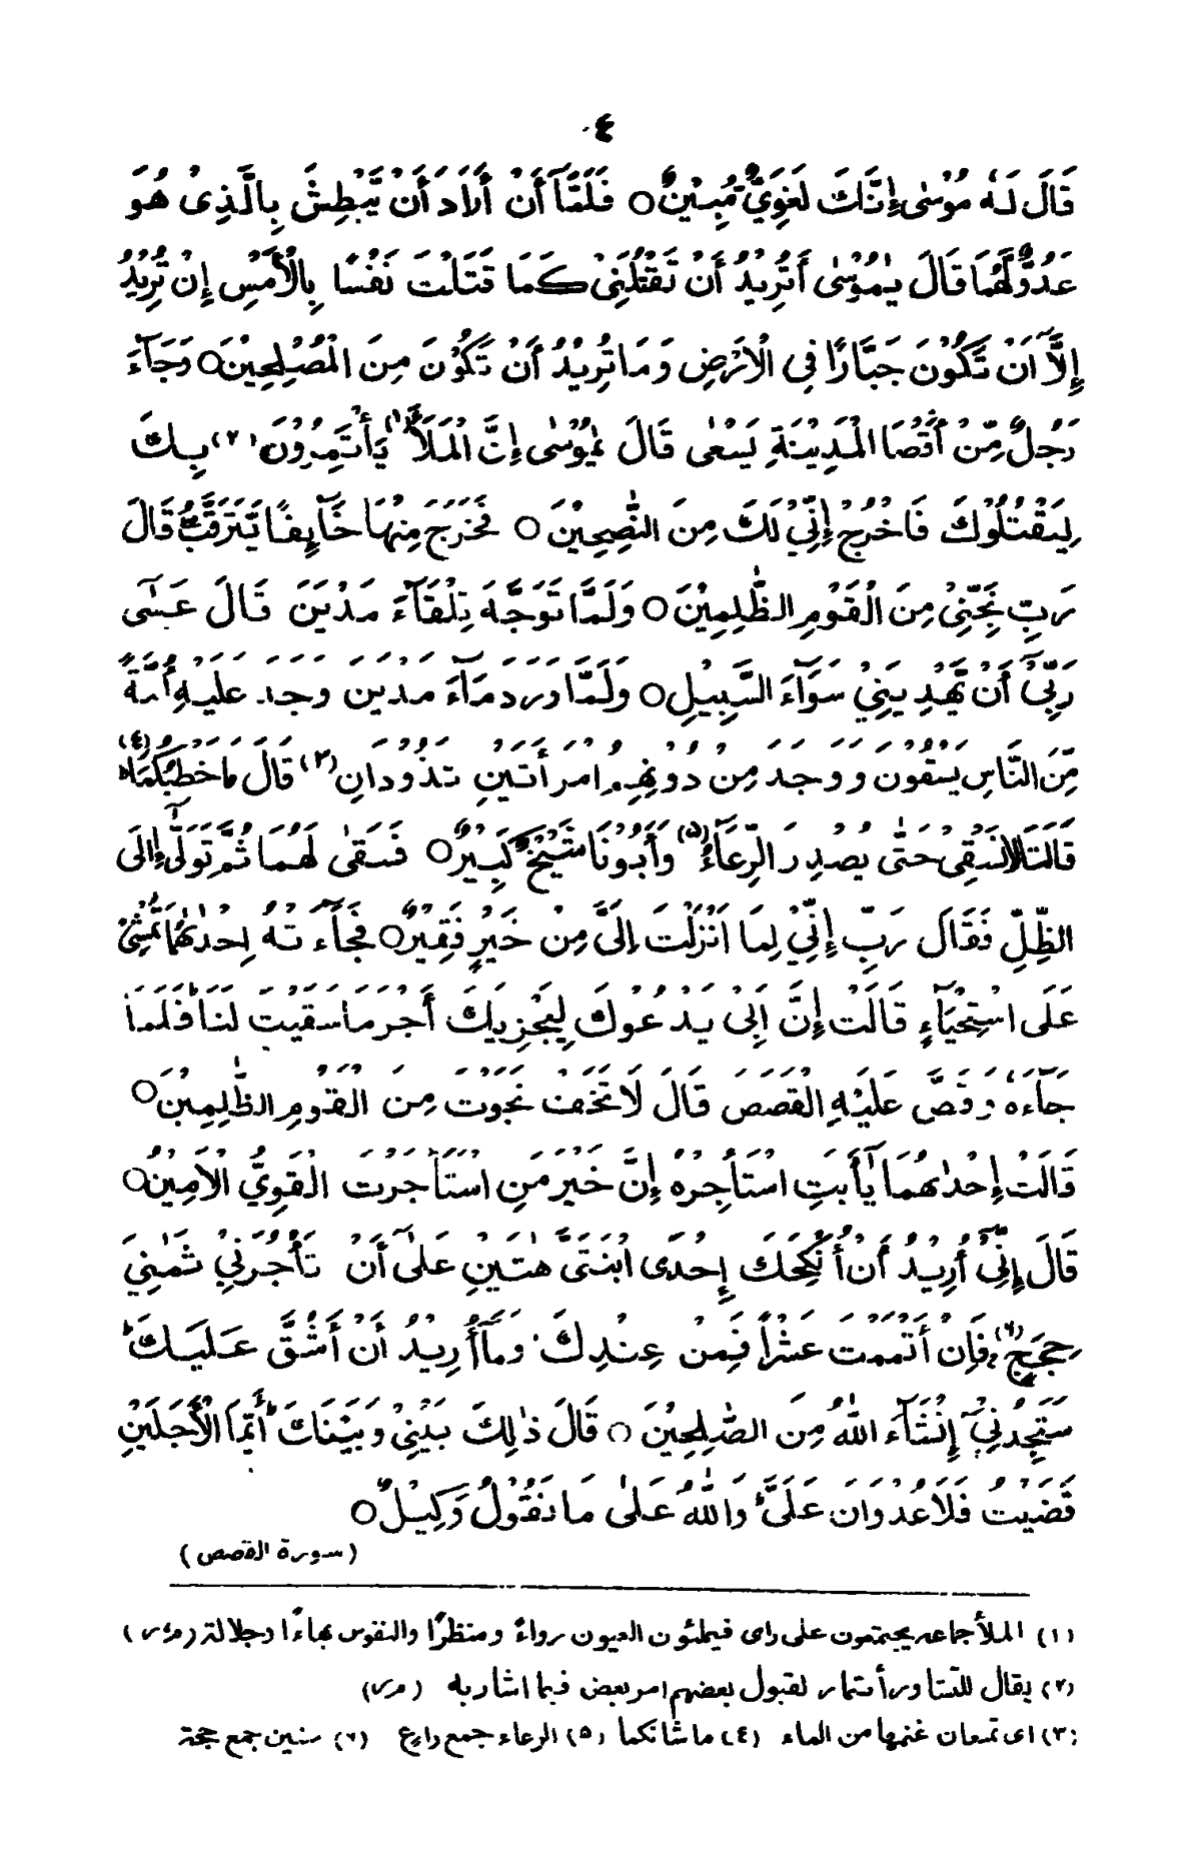 ٤٠
قَالَ لَهٗ مُوْسٰى إِنَّكَ لَغَوِيٌّ مُّبِيْنٌ ○ فَلَمَّآ أَنْ أَرَادَ أَنْ يَّبْطِشَ بِالَّذِىْ هُوَ
عَدُوٌّ لَّهُمَا قَالَ يٰمُوْسٰى أَتُرِيْدُ أَنْ تَقْتُلَنِىْ كَمَا قَتَلْتَ نَفْسًا بِالْأَمْسِ إِنْ تُرِيْدُ
إِلَّآ اَنْ تَكُوْنَ جَبَّارًا فِى الْاَرْضِ وَمَا تُرِيْدُ أَنْ تَكُوْنَ مِنَ الْمُصْلِحِيْنَ ○ وَجَآءَ
رَجُلٌ مِّنْ أَقْصَا الْمَدِيْنَةِ يَسْعٰى قَالَ يٰمُوْسٰى إِنَّ الْمَلَأَ (١) يَأْتَمِرُوْنَ (٢) بِكَ
لِيَقْتُلُوْكَ فَاخْرُجْ إِنِّيْ لَكَ مِنَ النّٰصِحِيْنَ ○ فَخَرَجَ مِنْهَا خَآئِفًا يَّتَرَقَّبُ قَالَ
رَبِّ نَجِّنِىْ مِنَ الْقَوْمِ الظّٰلِمِيْنَ ○ وَلَمَّا تَوَجَّهَ تِلْقَآءَ مَدْيَنَ قَالَ عَسٰى
رَبِّىْٓ أَنْ يَّهْدِيَنِيْ سَوَآءَ السَّبِيْلِ ○ وَلَمَّا وَرَدَ مَآءَ مَدْيَنَ وَجَدَ عَلَيْهِ أُمَّةً
مِّنَ النَّاسِ يَسْقُوْنَ وَوَجَدَ مِنْ دُوْنِهِمُ امْرَأَتَيْنِ تَذُوْدَانِ (٣) قَالَ مَا خَطْبُكُمَا (٤)
قَالَتَا لَا نَسْقِىْ حَتّٰى يُصْدِرَ الرِّعَآءُ (٥) وَأَبُوْنَا شَيْخٌ كَبِيْرٌ ○ فَسَقٰى لَهُمَا ثُمَّ تَوَلّٰٓى إِلَى
الظِّلِّ فَقَالَ رَبِّ إِنِّيْ لِمَا اَنْزَلْتَ إِلَىَّ مِنْ خَيْرٍ فَقِيْرٌ ○ فَجَآءَتْهُ إِحْدٰهُمَا تَمْشِىْ
عَلَى اسْتِحْيَآءٍ قَالَتْ إِنَّ اَبِىْ يَدْعُوْكَ لِيَجْزِيَكَ أَجْرَ مَا سَقَيْتَ لَنَا فَلَمَّا
جَآءَهٗ وَقَصَّ عَلَيْهِ الْقَصَصَ قَالَ لَا تَخَفْ نَجَوْتَ مِنَ الْقَوْمِ الظّٰلِمِيْنَ ○
قَالَتْ إِحْدٰهُمَا يٰٓأَبَتِ اسْتَأْجِرْهُ إِنَّ خَيْرَ مَنِ اسْتَأْجَرْتَ الْقَوِيُّ الْاَمِيْنُ ○
قَالَ إِنِّىْٓ أُرِيْدُ أَنْ أُنْكِحَكَ إِحْدَى ابْنَتَىَّ هٰتَيْنِ عَلٰٓى أَنْ تَأْجُرَنِيْ ثَمٰنِيَ
حِجَجٍ (٦) فَاِنْ أَتْمَمْتَ عَشْرًا فَمِنْ عِنْدِكَ وَمَآ أُرِيْدُ أَنْ أَشُقَّ عَلَيْكَ
سَتَجِدُنِيْٓ إِنْشَآءَ اللّٰهُ مِنَ الصّٰلِحِيْنَ ○ قَالَ ذٰلِكَ بَيْنِيْ وَبَيْنَكَ أَيَّمَا الْأَجَلَيْنِ
قَضَيْتُ فَلَا عُدْوَانَ عَلَىَّ وَاللّٰهُ عَلٰى مَا نَقُوْلُ وَكِيْلٌ ○
(سورة القصص)
(١) الملأ جماعه يجتمعون على راى فيملئون العيون رواءً ومنظرًا والنفوس بهاءًا وجلالة
(٢) يقال للتشاور أتمار لقبول بعضهم امر بعض فيما اشاربه
(٣) اى تمنعان غنمها من الماء (٤) ما شانكما (٥) الرعاء جمع راعٍ (٦) سنين جمع حجة